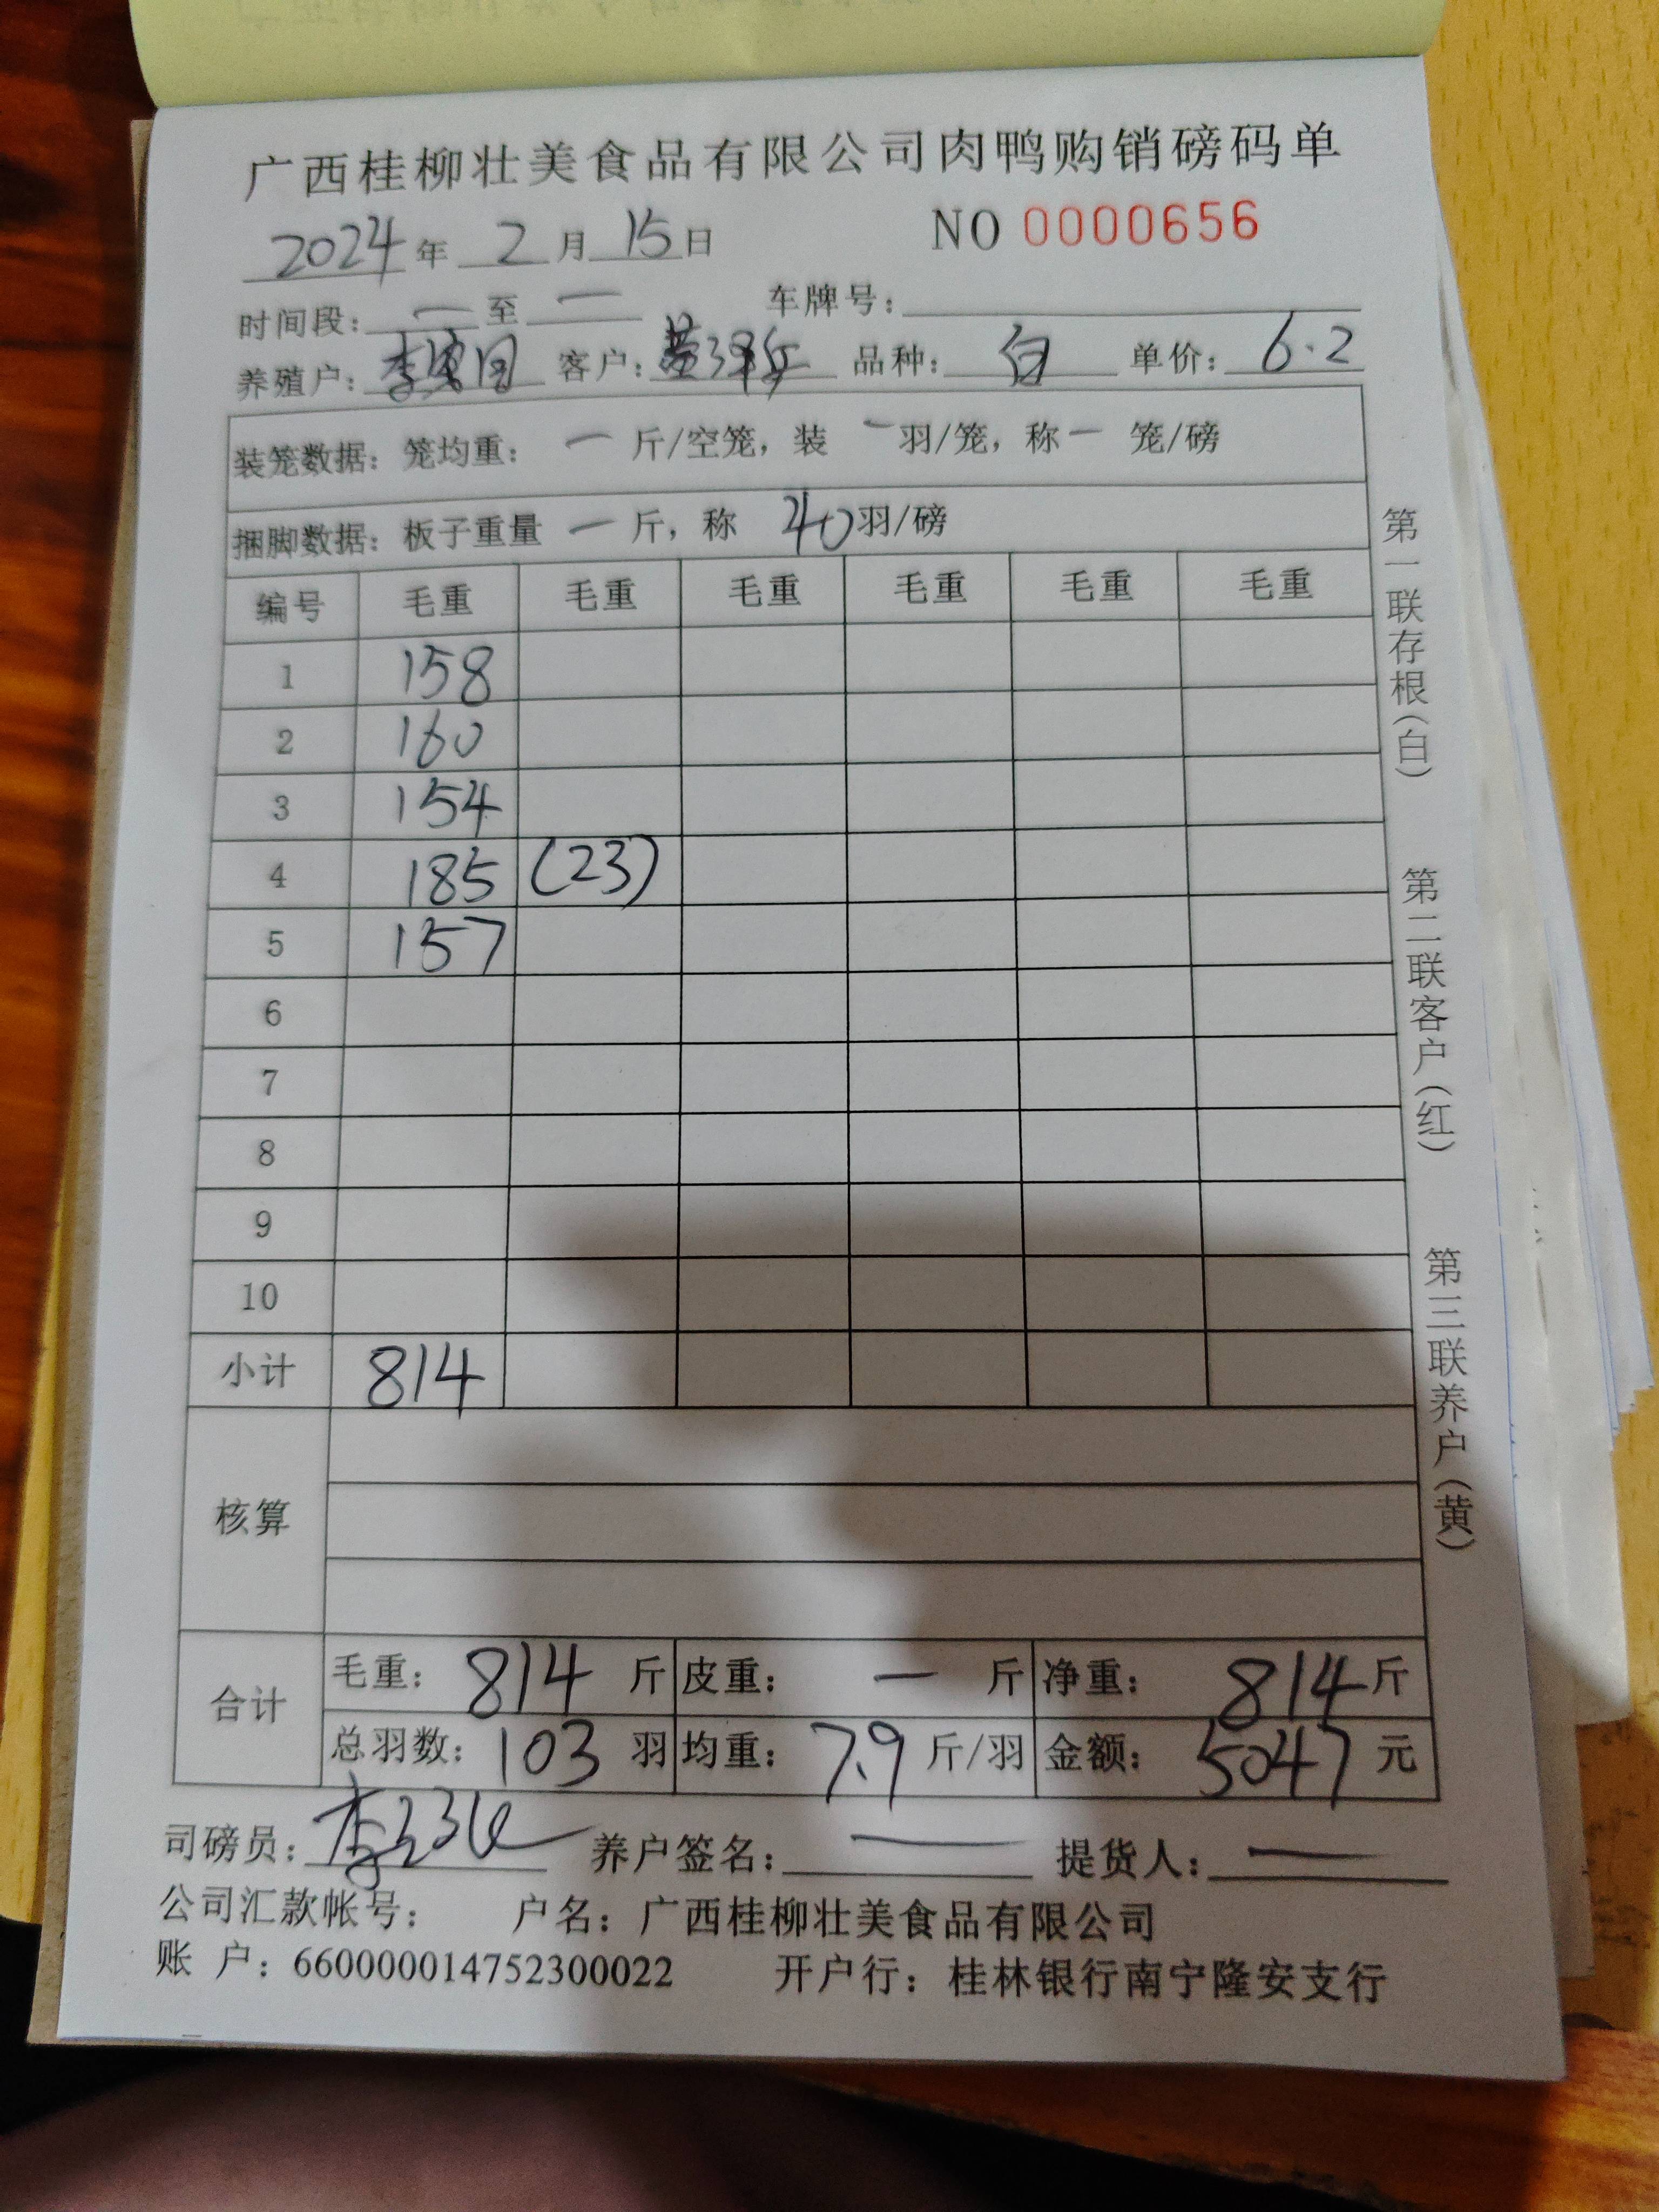 广西桂柳壮美食品有限公司肉鸭购销磅码单
2024年 2月 15日 NO 0000656
时间段：一 至 一 车牌号：
养殖户：李 客户：黄泽 品种：白 单价：6.2
装笼数据：笼均重： 一 斤/空笼，装 一 羽/笼，称 一 笼/磅
捆脚数据：板子重量 一 斤，称 40 羽/磅
编号 毛重 毛重 毛重 毛重 毛重 毛重
1 158
2 160
3 154
4 185 (23)
5 157
6
7
8
9
10
小计 814
核算
合计 毛重：814 斤 皮重： 一 斤 净重：814 斤
总羽数：103 羽 均重：7.9 斤/羽 金额：5047 元
司磅员：李 养户签名：一 提货人：一
公司汇款帐号： 户名：广西桂柳壮美食品有限公司
账 户：660000014752300022 开户行：桂林银行南宁隆安支行
第一联存根（白）
第二联客户（红）
第三联养户（黄）